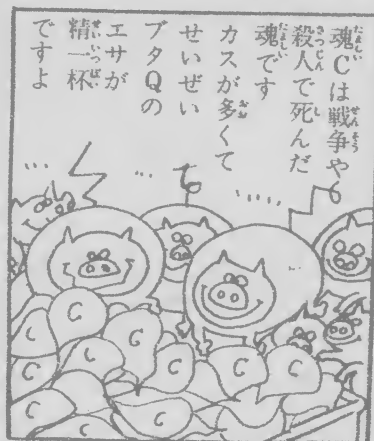 魂Cは戦争や
殺人で死んだ
魂です
カスが多くて
せいぜい
ブタQの
エサが
精一杯
ですよ
C
C
C
C
C
C
C
C
C
C
C